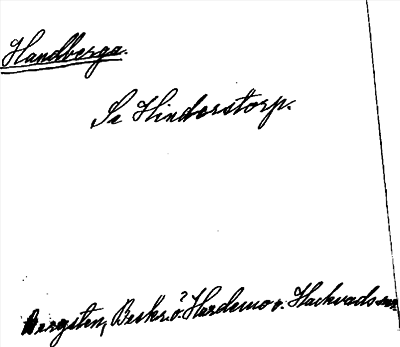 Handberga.
Se Hinderstorp.
Bergsten, Beskr. ö. Hardemo o. Hackvads snr